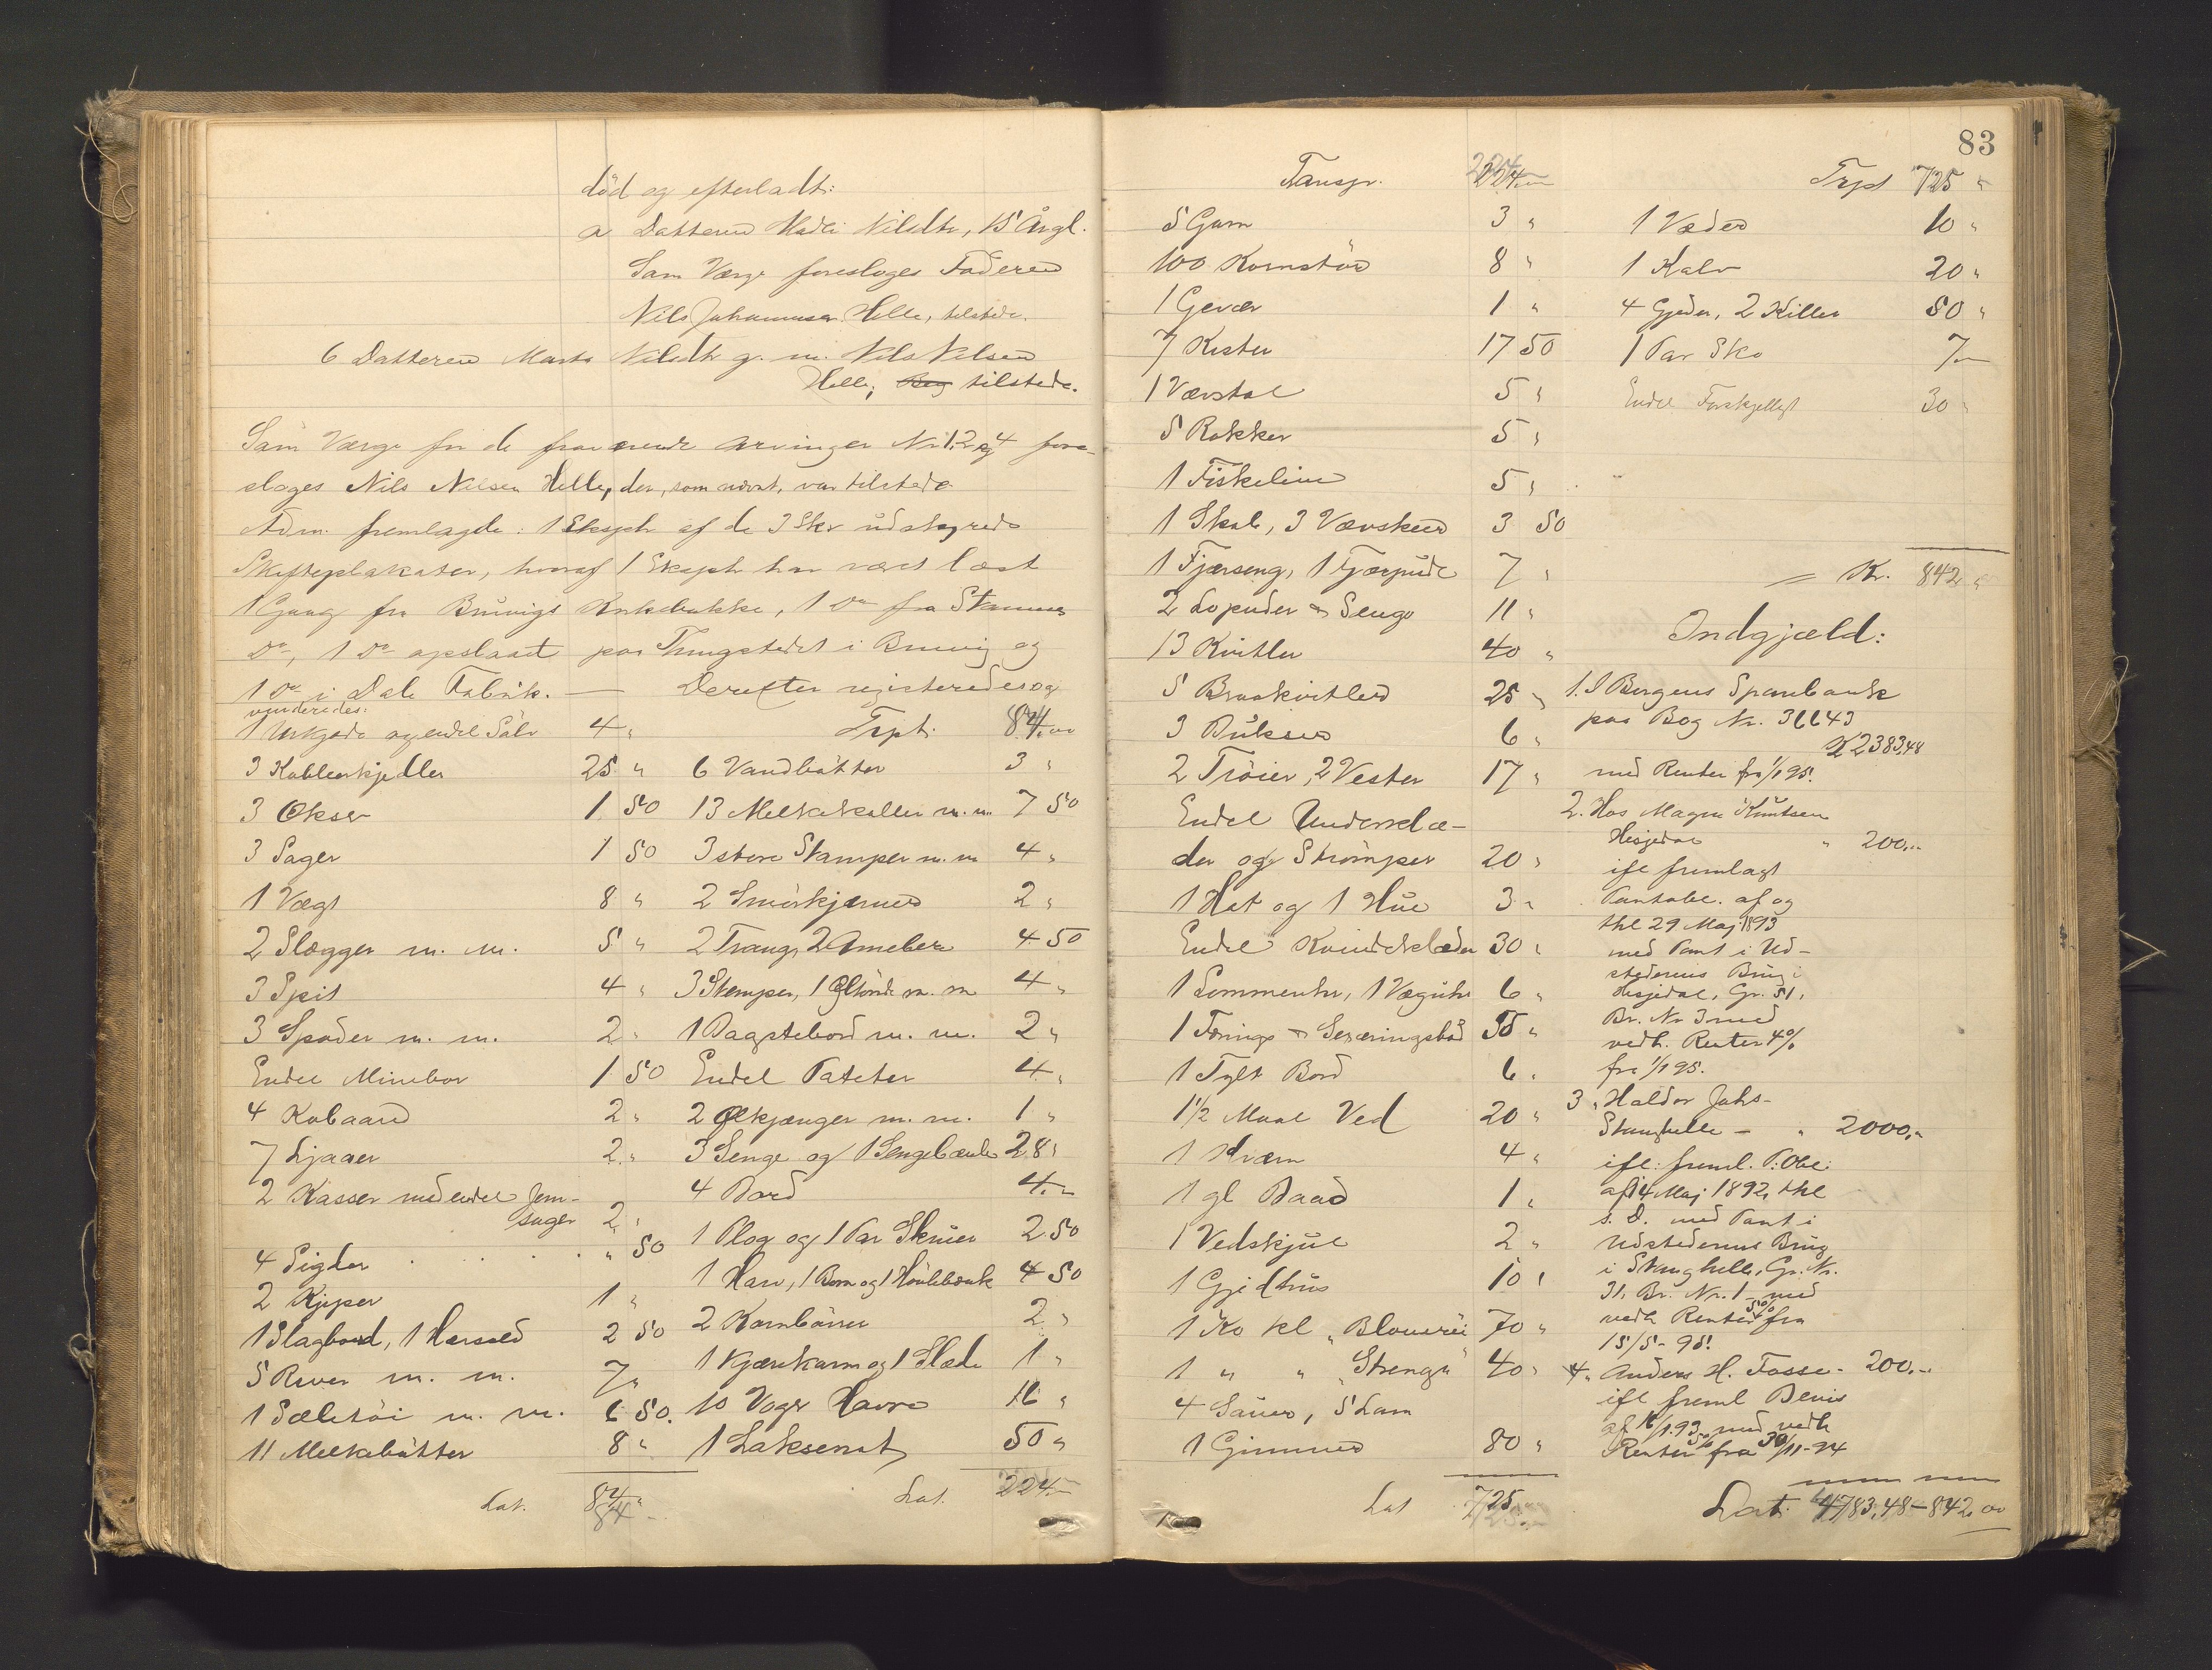 død og efterladt:
a Datteren Nilsdtr, 15 Årgl.
Som Værge foresloges Faderen
Nils Johannesen Helle, tilstede.
6 Datteren Marta Nilsdtr g. m. Nils Nilsen
Helle, tilstede.
Som Værge for de fraværende Arvinger No 1, 2 og 4 fore-
sloges Nils Nilsen Helle, der, som nævnt, var tilstede
Adm. fremlagde: 1 Exph af de 3 Skr udstyrede
Skifteplakater, hvoraf 1 Exph har været læst
1 Gang fra Bruvigs Kirkebakke, 1 Do fra Stamnes
Do, 1 Do opslaaet paa Thingstedet i Bruvig og
1 Do i Dale Fabrik. — Derefter registreredes og
vurderedes:
1 Urkjæde og endel Sølv 4 "
3 Kobberkjedler 25 "
3 Økser 1 50
3 Sager 1 50
1 Vægt 8 "
2 Slægger m. m. 5 "
3 Spit 4 "
3 Spader m. m. 2 "
Endel Minebor 1 50
4 2 "
7 Ljaaer 2 "
2 Kasser med endel Jern-
sager 2 "
4 Sigder . . . . " 50
2 Kjeper 1 "
1 Slagbord, 1 2 50
5 River m. m. 7 "
1 Seletøi m. m. 6 50.
11 Melkebøtter 8 "
Lat. 84 "
84 –
Trpt. 84.00
6 Vandbøtter 3 "
13 Melkekoller m. m. 7 50
3 store Stamper m. m 4 "
2 Smørkjerner 2 "
2 Traug, 2 Ambere 4 50
3 Stamper, 1 Øltønde m. m 4 "
1 Bagstebord m. m. 2 "
Endel 4 "
2 m. m. 1 "
3 Senge og 1 Sengebænk 28 "
4 Bord 4. "
1 Plog og 1 Par Skruer 2 50
1 Harv, 1 Bom og 1 Høvlebænk 4 50
2 Kornbører 2 "
1 Kjærrekarm og 1 Slæde 1 "
10 Voger Havre 16 "
1 Laksenot 50 "
Lat. 224 –
83
Transpr. 224 –
5 Garn 3 "
100 Kornstør 8 "
1 Gevær 1 "
7 Kister 17 50
1 Vævstol 5 "
5 Rokker 5 "
1 Fiskeline 5 "
1 Skab, 3 Vævskeer 3 50
1 Fjærseng, 1 Fjærpude 7 "
2 Lopuder & Senge 11 "
13 Kvitler 40 "
5 Braakvitler 25 "
3 Bukser 6 "
2 Trøier, 2 Vester 17 "
Endel Underklæ-
der og Strømper 20 "
1 Hat og 1 Hue 3 "
Endel Kvindeklæder 30 "
1 Lommeuhr, 1 Væguhr 6 "
1 Færings & Sexæringsbåd 50 "
1 Tylt Bord 6 "
1½ Maal Ved 20 "
1 Kværn 4 "
1 gl Baad 1 "
1 Vedskjul 2 "
1 Gjedhus 10 "
1 Ko kl "Blomrei" 70 "
1 " " "Strenga" 40 "
4 Sauer, 5 Lam
1 Gimmer 80 "
Lat 725 –
Trpt 725 "
1 Væder 10 "
1 Kalv 20 "
4 Gjeder, 2 Killer 50 "
1 Par Sko 7 –
Endel Forskjelligt 30 "
= Kr. 842 "
Indgjæld:
1. I Bergens Sparebank
paa Bog Nr. 36643
K 2383,48
med Renter fra 1/1 95.
2. Hos Magne Knutsen
Hesjedal " 200,"
ifl fremlagt
Pantobl. af og
thl 29 Maj 1893
med Pant i Ud-
stederens Brug i
Hesjedal, Gr. 51,
Br. Nr 3 med
vedh. Renter 4%
fra 1/1 95.
3, Haldor Johs-
Stanghelle – " 2000,"
ifl: freml. P: Obl:
af 14 Maj 1892, thl
s. D. med Pant i
Udstederens Brug
i Stanghelle, Gr. Nr.
31, Br. Nr. 1 – med
vedh Renter 5% fra
15/5 – 95.
4, Anders H. Fosse – 200,–
ifl freml Bevis
af 16/1 93 med vedh
Renter 5% fra 30/11 – 94
Lat. 4783,48 – 842,00